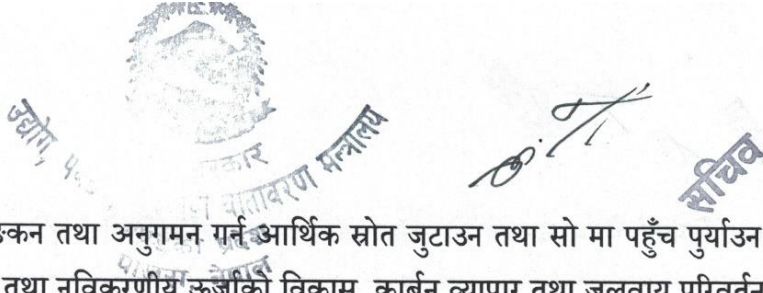 उद्योग,
मन्त्रालय
सचिव
ङ्कन तथा अनुगमन गर्न आर्थिक स्रोत जुटाउन तथा सो मा पहुँच पुर्याउन
तथा नविकरणीय ऊर्जाको विकास, कार्बन व्यापार तथा जलवायु परिवर्तन